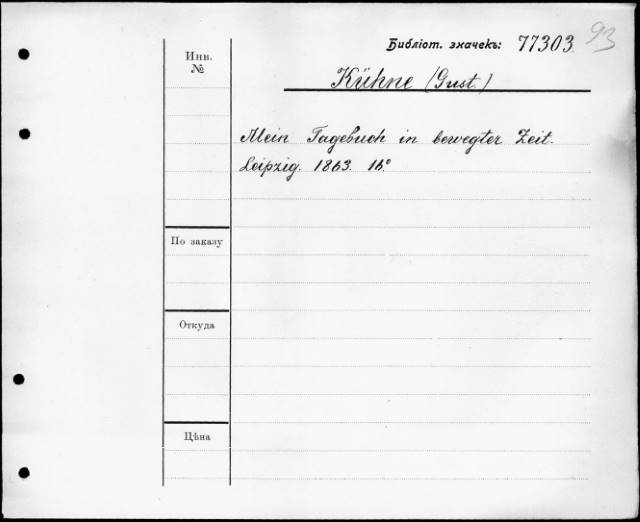 Библіот. значекъ: 77303. 93
Инв.
№
Kühne (Gust.)
Mein Tagebuch in bewegter Zeit.
Leipzig. 1863. 16°
По заказу
Откуда
Цѣна